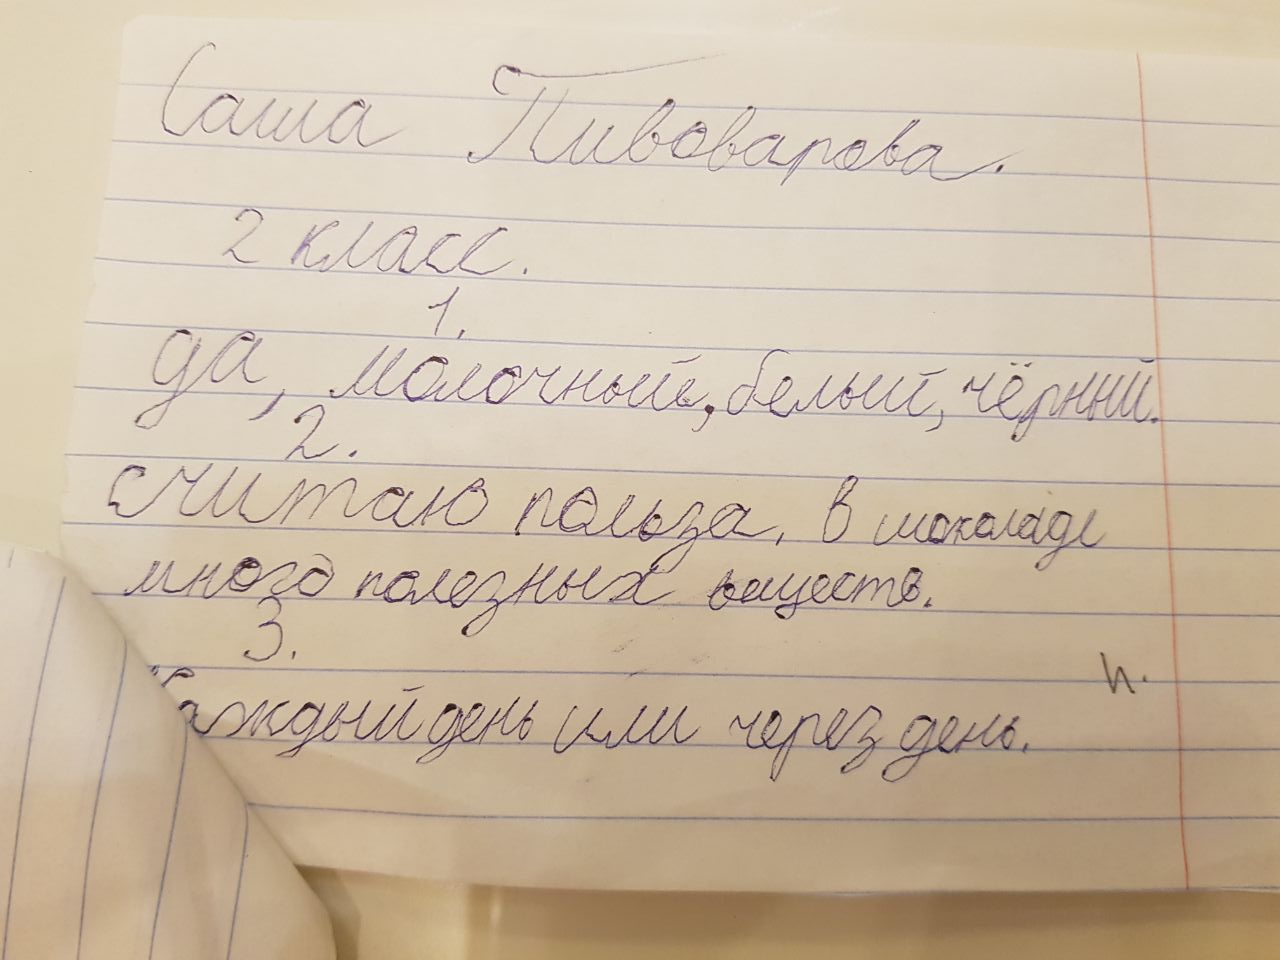 Саша Пивоварова.
2 класс.
1.
да, молочный, белый, чёрный.
2.
считаю польза, в шоколаде
много полезных веществ.
3.
Каждый день или через день.